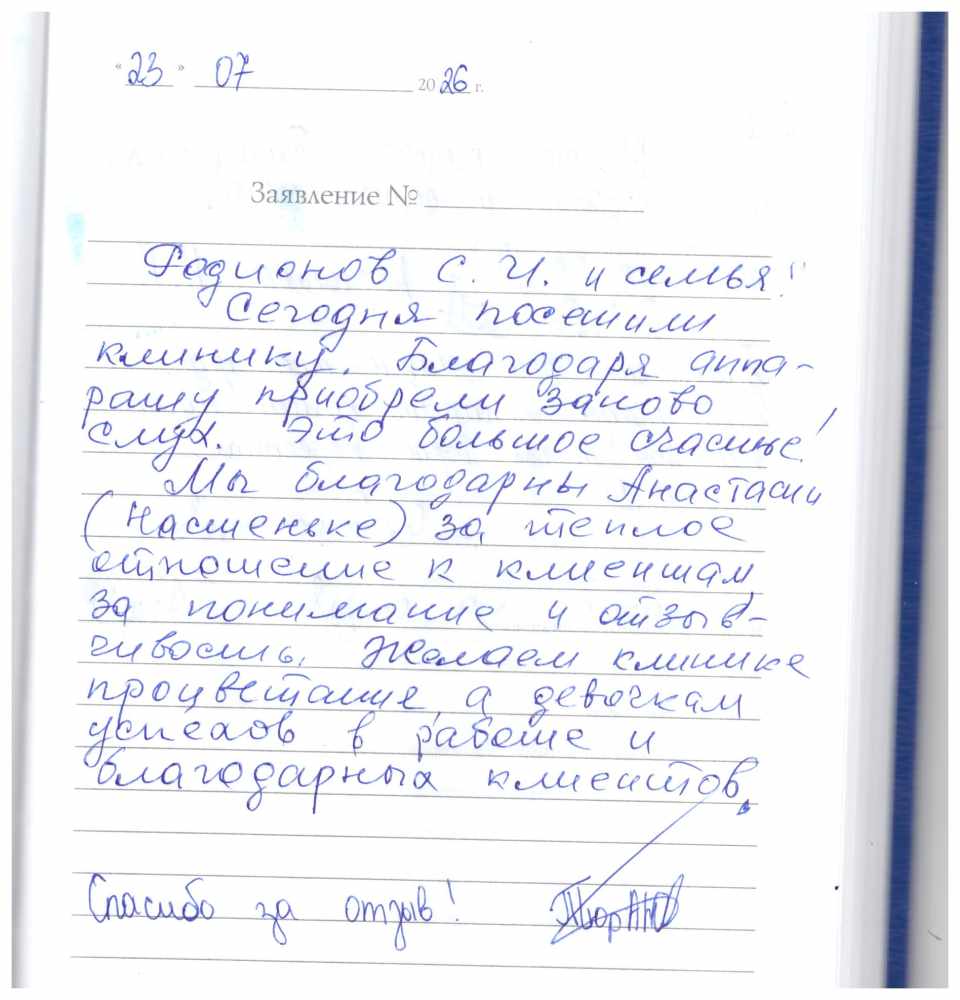 « 23 » 07 2026 г.
Заявление №
Родионов С. И. и семья!
Сегодня посетили
клинику. Благодаря аппа-
рату приобрели заново
слух. Это большое счастье!
Мы благодарны Анастасии
(Настеньке) за теплое
отношение к клиентам,
за понимание и отзыв-
чивость. Желаем клинике
процветание, а девочкам
успехов в работе и
благодарных клиентов.
Спасибо за отзыв!